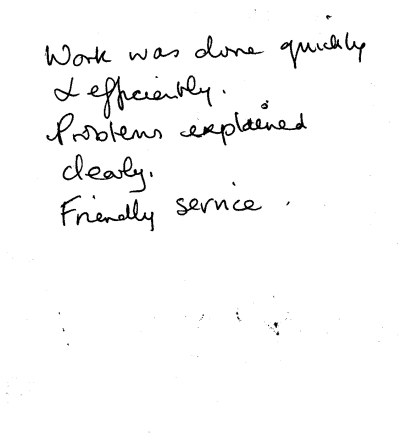 Work was done quickly
& efficiently.
Problems explained
clearly.
Friendly service.